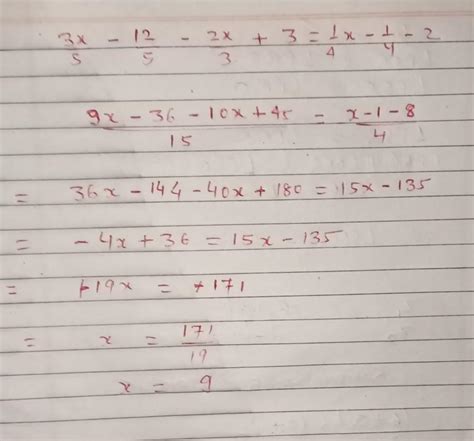 3x/5 - 12/5 - 2x/3 + 3 = 1/4 x - 1/4 - 2
9x - 36 - 10x + 45 / 15 = x - 1 - 8 / 4
= 36x - 144 - 40x + 180 = 15x - 135
= - 4x + 36 = 15x - 135
= +19x = +171
= x = 171/19
x = 9